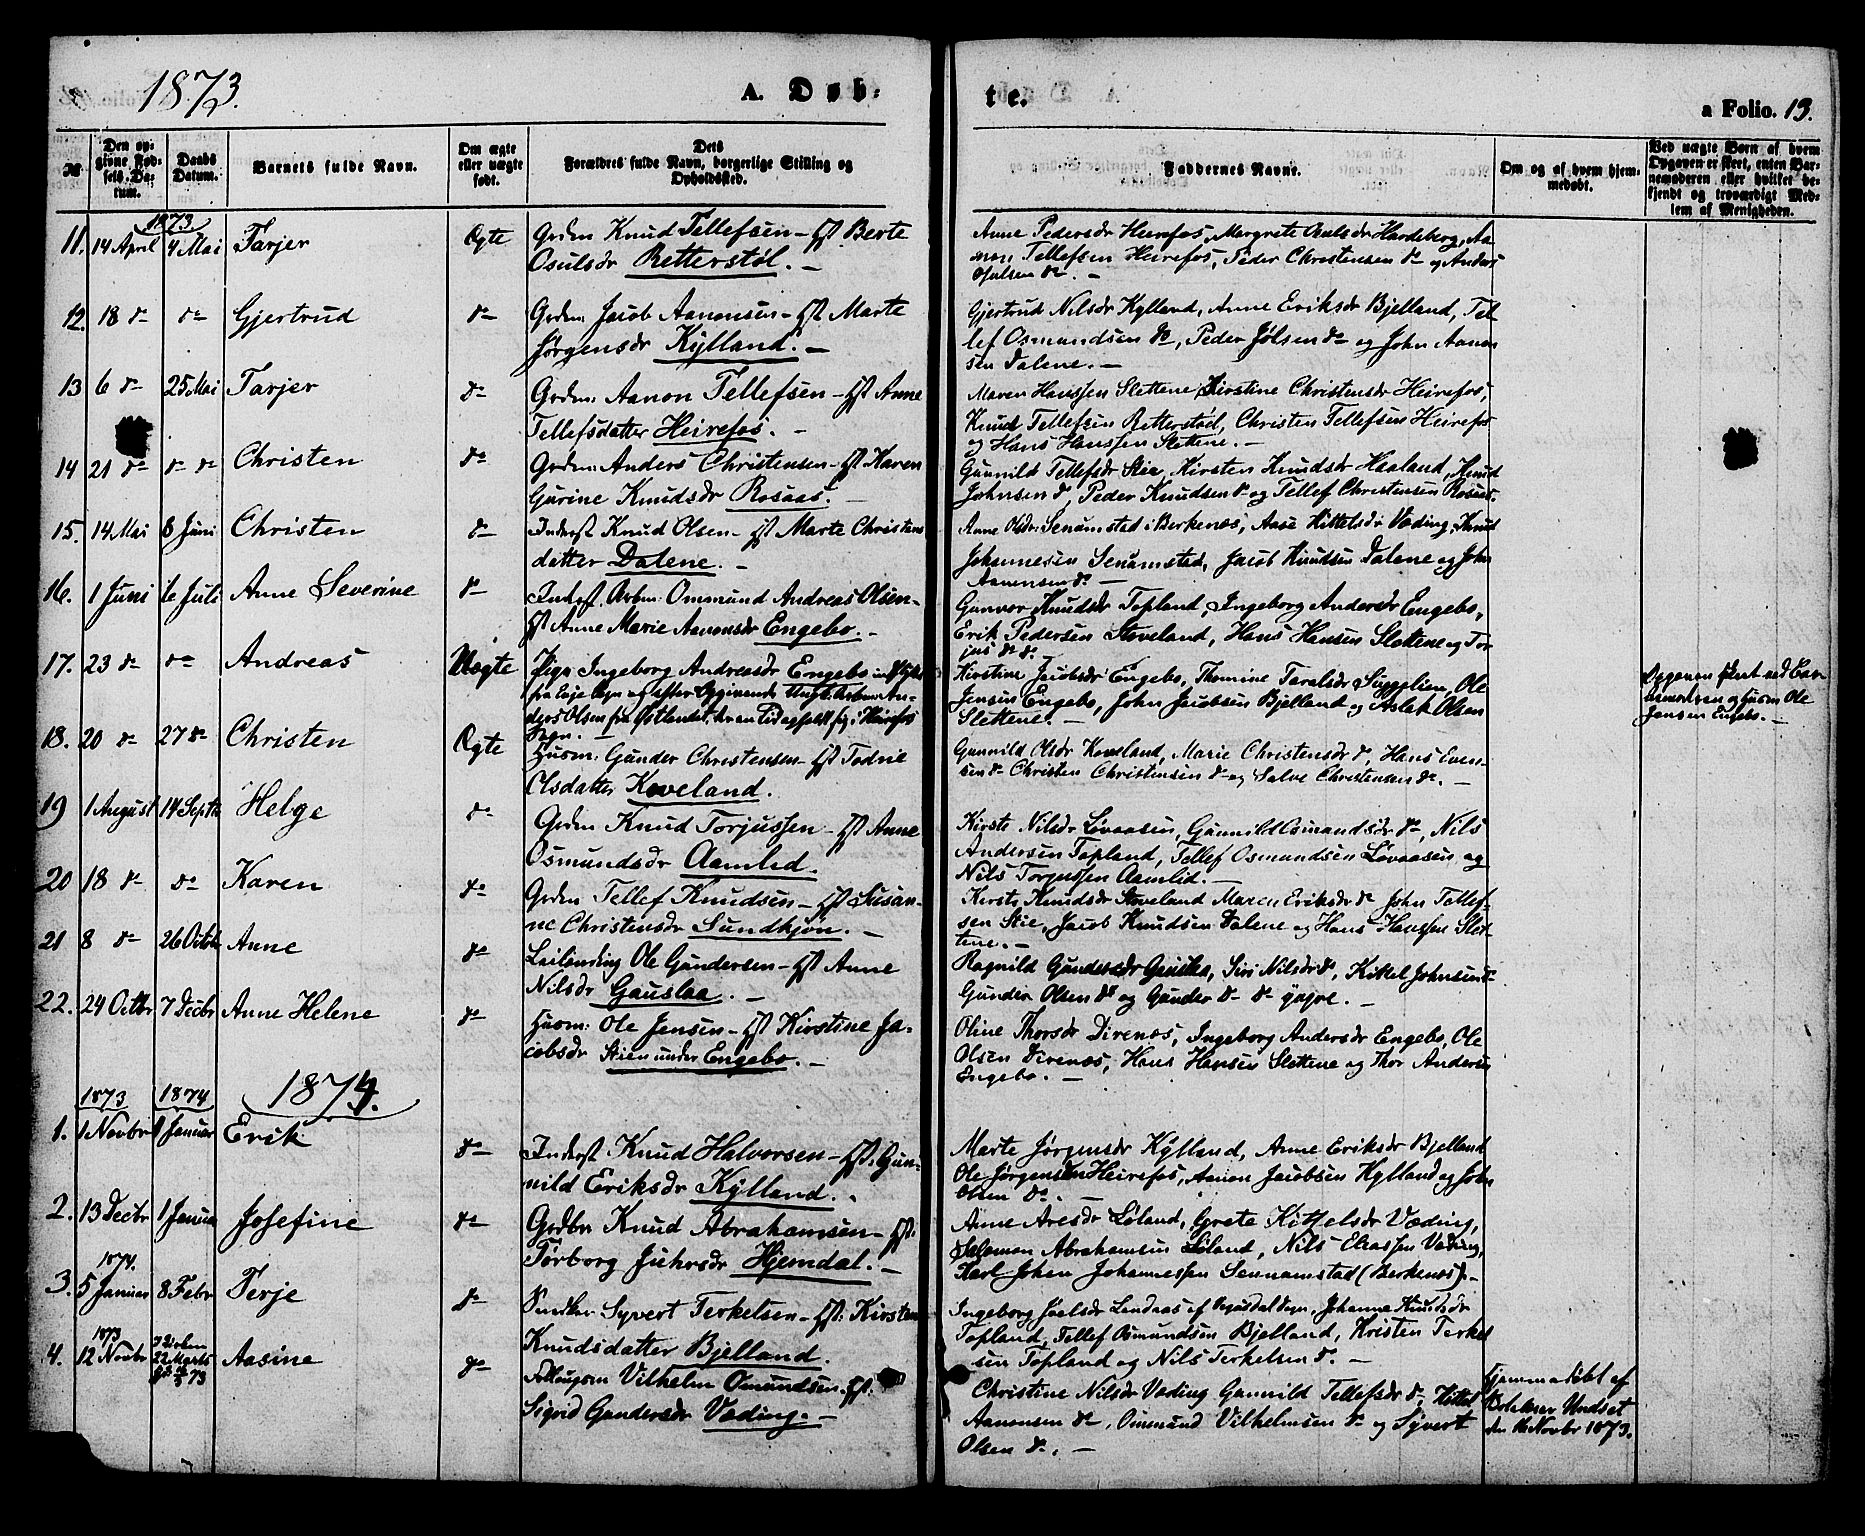 1873.
A. Døb-
te.
a Folio. 13.
№
Den op-
givne Fød-
sels-Da-
tum.
Daabs
Datum.
Barnets fulde Navn.
Om ægte
eller uægte
født.
Dets
Forældres fulde Navn, borgerlige Stilling og
Opholdssted.
Faddernes Navne.
Om og af hvem hjem-
medøbt.
Ved uægte Børn af hvem
Opgaven er skeet, enten Bar-
nemoderen eller hvilket be-
kjendt og troværdigt Med-
lem af Menigheden.
1873
11. 14 April 4 Mai Tarjer Ægte Grdm Knud Tellefsen – Hst Berte
Osulsdr Retterstøl. –
Anne Pedersdr Heirefos, Margrete Osulsdr Hardeberg, Aa-
non Tellefsen Heirefos, Peder Christensen do og Anders
Osulsen do. –
12. 18 do do Gjertrud do Grdm: Jacob Aanonsen – Hst Marte
Jørgensdr Kylland. –
Gjertrud Nilsdr Kylland, Anne Eriksdr Bjelland, Tel-
lef Osmundsen do, Peder Jølsen do og John Aanon
sen Dalene. –
13 6 do 25 Mai Tarjer do Grdm: Aanon Tellefsen – Hst Anne
Tellefsdatter Heirefos. –
Maren Hanssen Slettene, Kirstine Christensdr Heirefos,
Knud Tellefsen Retterstød, Christen Tellefsen Heirefos
og Hans Hanssen Slettene. –
14 21 do do do Christen do Grdm: Anders Christensen – Hst Karen
Gurine Knudsdr Rosaas. –
Gunnild Tellefsdr Stie, Kirsten Knudsdr Haaland, Knud
Johnsen do, Peder Knudsen do og Tellef Christensen Rosaas.
15. 14 Mai 8 Juni Christen do Inderst Knud Olsen – Hst Marte Christens
datter Dalene. –
Anne Olsdr: Senumstad i Berkenes, Aase Kittelsdr Væding, Knud
Johannesen Senumstad, Jacob Knudsen Dalene og John
Aanonsen do –
16. 1 Juni 6 Juli Anne Severine do Inderst. Arbm. Ommund Andreas Olsen –
Hst Anne Marie Aanonsdr Engebo. –
Gunvor Knudsdr Topland, Ingeborg Andersdr Engebo,
Erik Pedersen Støveland, Hans Hansen Slettene og Tor
jus do do.
17. 23 do do Andreas Uægte Pige Ingeborg Andreasdr Engebo
fra Eje Sogn og efter Opgivende Ungk. Arbm. An-
ders Olsen fra Østlandet, der en Tid opholdt sig i Heirefos
Sogn. –
Kirstine Jacobsdr Engebo, Thomine Taralsdr Siggelien, Ole
Jensen Engebo, John Jacobsen Bjelland og Aslak Olsen
Slettene. –
Opgaven skeet ved Bar-
nemoderen og Husm Ole
Jensen Engebo. –
18. 20 do 27 do Christen Ægte Husm: Gunder Christensen – Hst Todne
Olsdatter Koveland.
Gunnild Olsdr Koveland, Marie Christensdr do, Hans Even-
sen do Christen Christensen do og Salve Christensen do. –
19 1 August 14 Septb Helge do Grdm Knud Torjussen – Hst Anne
Osmundsdr Aamlid.
Kirste Nilsdr Løvaasen, Gunnild Osmundsdr do, Nils
Andersen Topland, Tellef Osmundsen Løvaasen og
Nils Torjussen Aamlid. –
20 18 do do Karen do Grdm Tellef Knudsen – Hst Susan-
ne Christensdr Sundhjøn. –
Kirste Knudsdr Støveland Maren Eriksdr do John Tellef-
sen Stie, Jacob Knudsen Dalene og Hans Hanssen Slet-
tene. –
21 8 do 26 Octob Anne do Leilending Ole Gundersen – Hst Anne
Nilsdr Gauslaa. –
Ragnild Gundersdr Gauslaa, Siri Nilsdr do, Kittel Johnsen do
Gunder Olsen do og Gunder do do yngre. –
22. 24 Octbr 7 Decbr Anne Helene do Husm: Ole Jensen – Hst Kirstine Ja-
cobsdr Stien under Engebo. –
Oline Thorsdr Direnæs, Ingeborg Andersdr Engebo, Ole
Olsen Direnæs, Hans Hansen Slettene og Thor Andersen
Engebo. –
1873 1874 1874.
1. 1 Novbr 1 Januar Erik do Inderst Knud Halvorsen – Hst: Gun-
nild Eriksdr Kylland.
Marte Jørgensdr Kylland, Anne Eriksdr Bjelland
Ole Jørgensen Heirefos, Aanon Jacobsen Kylland og John
Olsen do. –
2. 13 Decbr 1 Januar Josefine do Grdbr Knud Abrahamsen – Hst:
Torborg Juhrsdr Hjemdal. –
Anne Aresdr Løland, Grete Kittelsdr Væding,
Salomon Abrahamsen Løland, Nils Eliassen Væding,
Karl Johan Johannessen Sennumstad (Berkenes). –
1874.
3. 5 Januar 8 Febr Terje do Syvert Terkelsen – Hst: Kirsten
Knudsdatter Bjelland.
Ingeborg Joelsdr Landaas af Vegusdal Sogn, Johanne Knudsdr
Topland, Tellef Osmundsen Bjelland, Kristen Terkel
sen Topland og Nils Terkelsen do. –
1873
4. 12 Novbr 22 Marts Aasine do Vilhelm Omundsen – Hst:
Sigrid Gundersdr Væding. –
Christine Nilsdr Væding Gunnild Tellefsdr do, Kittel
Aanonsen do, Ommund Vilhelmsen do og Syvert
Olsen do. –
Hjemmedøbt af
Undset
den 16 Novbr 1873.